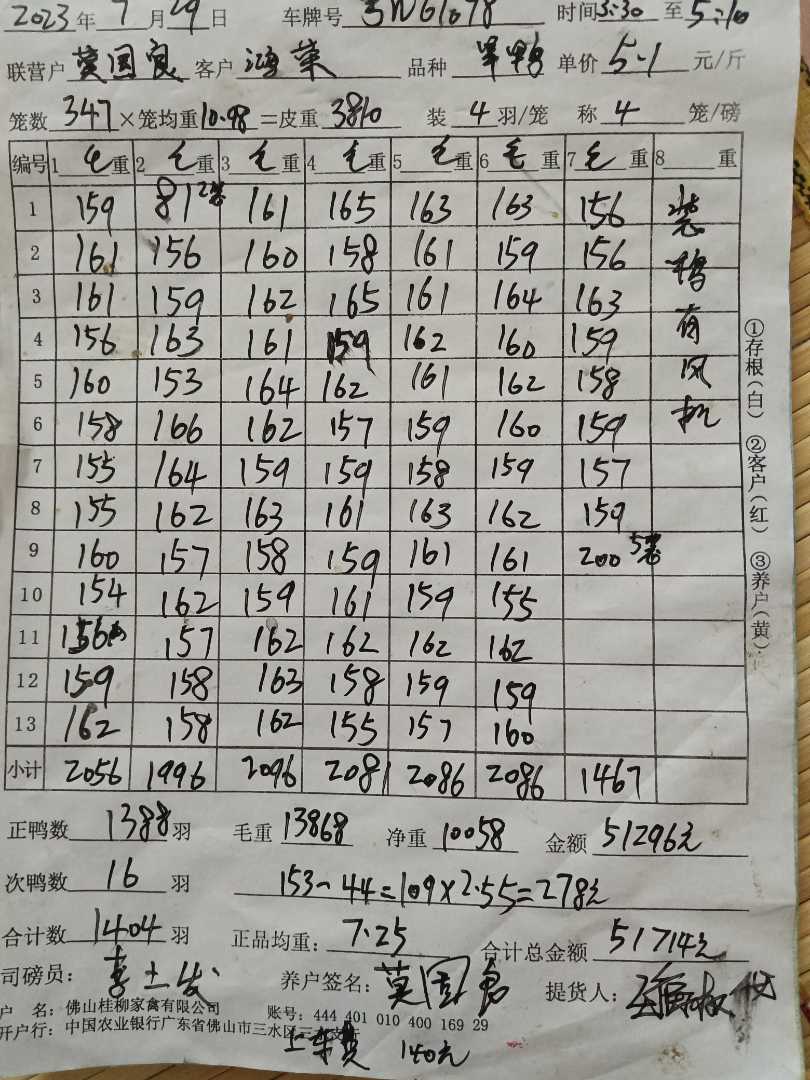 2023年 7月29日 车牌号 时间3:30至5:10
联营户 莫国良 客户 鸿荣 品种 单价 5.1 元/斤
笼数 347 ×笼均重 10.98 =皮重 3810 装 4 羽/笼 称 4 笼/磅
编号 1 毛 重 2 毛 重 3 毛 重 4 毛 重 5 毛 重 6 毛 重 7 毛 重 8 重
1 159 81 2笼 161 165 163 163 156 装
2 161 156 160 158 161 159 156 鸭
3 161 159 162 165 161 164 163 有
4 156 163 161 159 162 160 159 风
5 160 153 164 162 161 162 158 机
6 158 166 162 157 159 160 159
7 155 164 159 159 158 159 157
8 155 162 163 161 163 162 159
9 160 157 158 159 161 161 200 5笼
10 154 162 159 161 159 155
11 156 157 162 162 162 162
12 159 158 163 158 159 159
13 162 158 162 155 157 160
小计 2056 1996 2096 2081 2086 2086 1467
①存根(白) ②客户(红) ③养户(黄)
正鸭数 1388 羽 毛重 13868 净重 10058 金额 51296元
次鸭数 16 羽 153-44=109×2.55=278元
合计数 1404 羽 正品均重: 7.25 合计总金额 51714元
司磅员: 养户签名: 莫国良 提货人:
户 名: 佛山桂柳家禽有限公司 账号: 444 401 010 400 169 29
开户行: 中国农业银行广东省佛山市三水区三水支行
上车费 140元